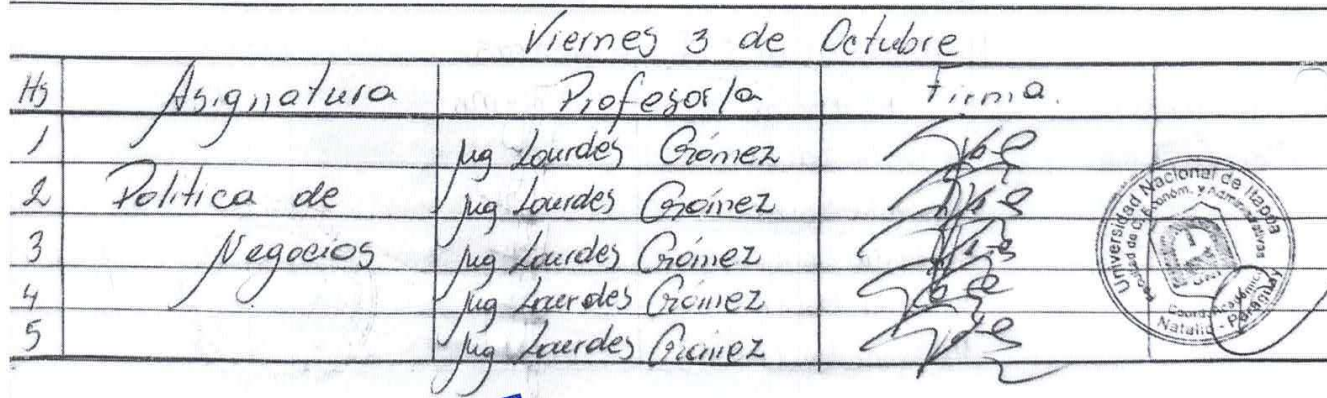 Viernes 3 de Octubre
Hs Asignatura Profesor/a Firma.
1 Mg Lourdes Gómez
2 Politica de Mg Lourdes Gómez
3 Negocios Mg Lourdes Gómez
4 Mg Lourdes Gómez
5 Mg Lourdes Gómez
Universidad Nacional de Itapúa
Natalio - Paraguay